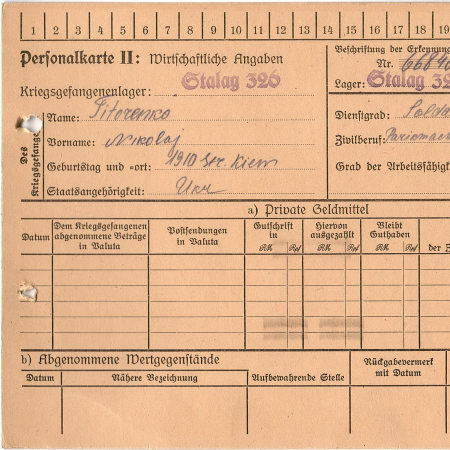 1 2 3 4 5 6 7 8 9 10 11 12 13 14 15 16 17 18 19
Personalkarte II: Wirtschaftliche Angaben
Beschriftung der Erkennung
Nr. 6684
Kriegsgefangenenlager: Stalag 326
Lager: Stalag 32
Des Kriegsgefange
Name: Titorenko
Dienstgrad: Solda
Vorname: Nikolaj
Zivilberuf:
Geburtstag und =ort: 1910 Kiew
Grad der Arbeitsfähigk
Staatsangehörigkeit: Ukr
a) Private Geldmittel
Datum
Dem Kriegsgefangenen abgenommene Beträge in Valuta
Postsendungen in Valuta
Gutschrift in
Hiervon ausgezahlt
Bleibt Guthaben
der
RM Rpf RM Rpf RM Rpf
b) Abgenommene Wertgegenstände
Rückgabevermerk mit Datum
Datum Nähere Bezeichnung Aufbewahrende Stelle